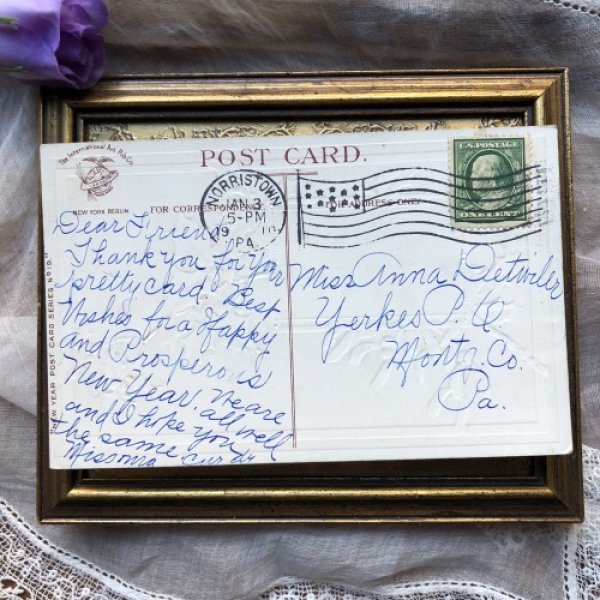 The International Art Pub. Co.
NEW YORK BERLIN
POST CARD.
FOR CORRESPONDENCE
FOR ADDRESS ONLY
"NEW YEAR POST CARD SERIES No 10."
NORRISTOWN
JAN 3
5-PM
1910
PA.
U.S. POSTAGE
ONE CENT
Dear Friend
Thank you for your
pretty card. Best
Wishes for a Happy
and Prosperous
New Year. We are
all well
and I hope you
the same
Miss
Miss Anna Detwiler
Yerkes P. O
Montg. Co.
Pa.